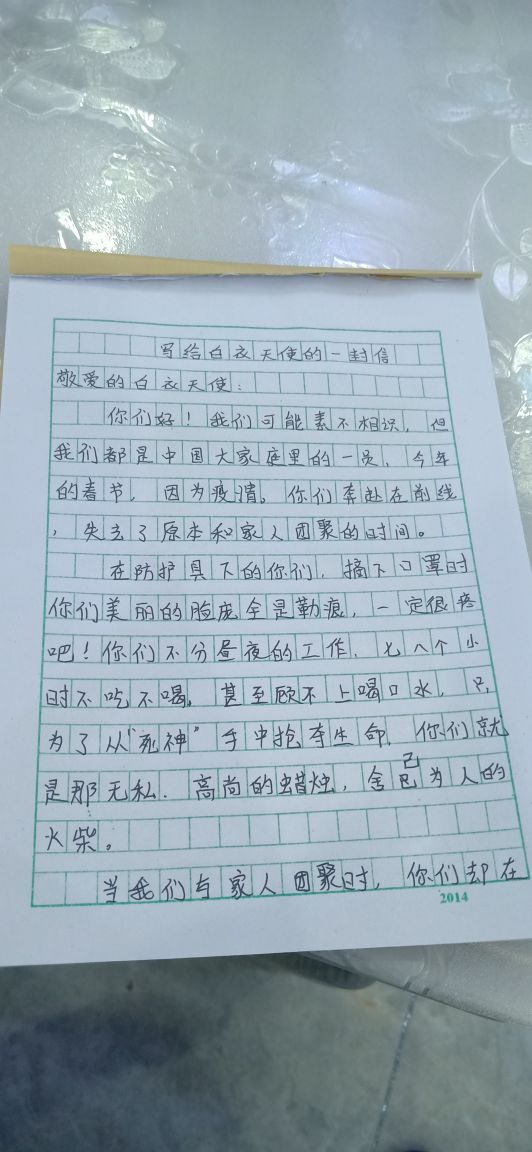 写给白衣天使的一封信
敬爱的白衣天使：
你们好！我们可能素不相识，但
我们都是中国大家庭里的一员，今年
的春节，因为疫情。你们奔赴在前线
，失去了原本和家人团聚的时间。
在防护具下的你们，摘下口罩时
你们美丽的脸庞全是勒痕，一定很疼
吧！你们不分昼夜的工作，七八个小
时不吃不喝，甚至顾不上喝口水，只
为了从“死神”手中抢夺生命，你们就
是那无私．高尚的蜡烛，舍己为人的
火柴。
当我们与家人团聚时，你们却在
2014